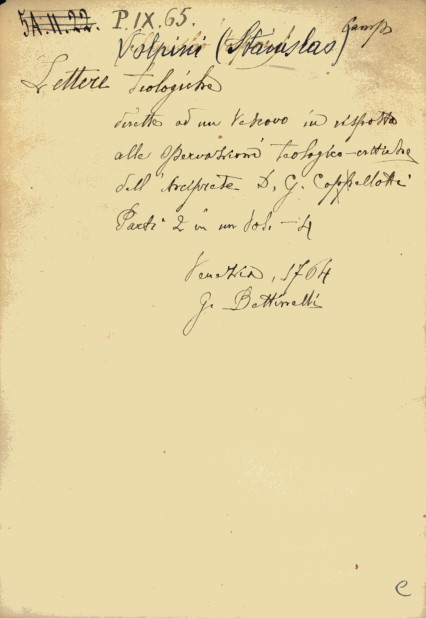 5A.II.22. P.IX.65.
Volpini (Stanislas)
Lettere Teologiche
dirette ad un Vescovo in risposta
alle Osservazioni teologico-critiche
dell'Arciprete D. G. Cappellotti
Parti 2 in un vol. - 4
Venezia, 1764
G. Bettinelli
C